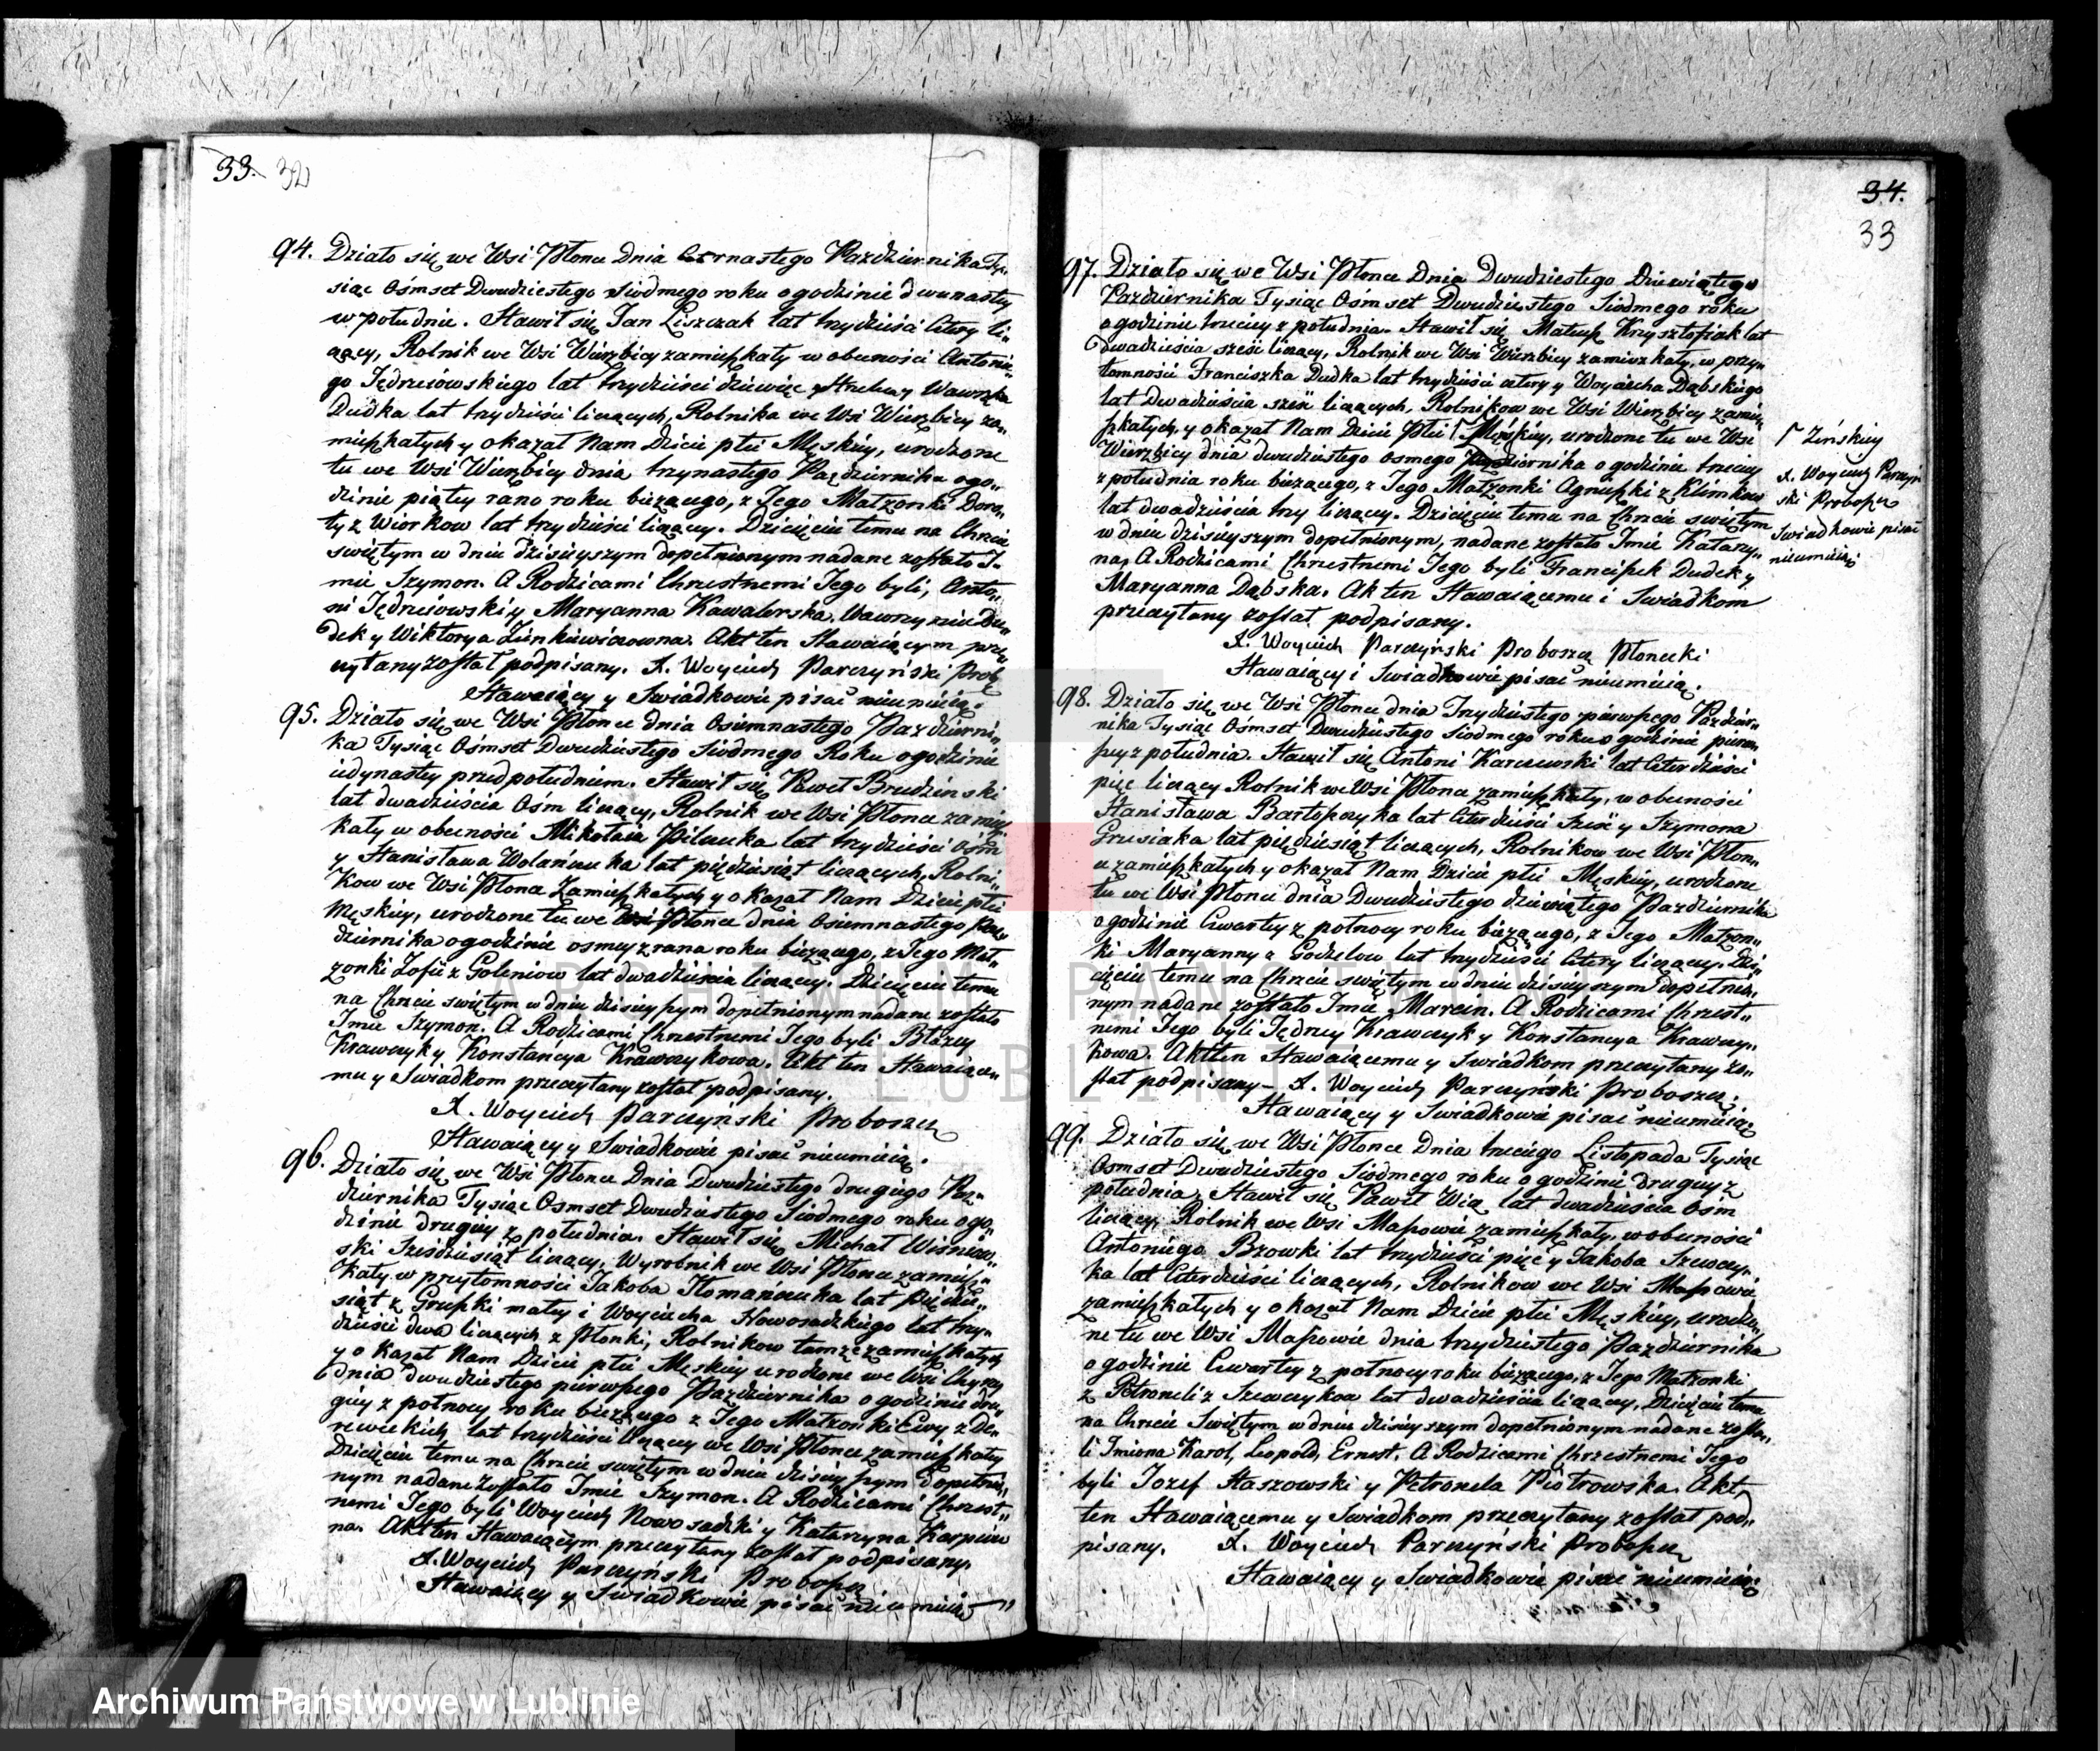 33. 32
94. Działo się we Wsi Płonce Dnia Czternastego Pazdziernika Ty-
siąc Ośmset Dwudziestego siodmego roku o godzinie dwunastey
w południe. Stawił się Jan Liszczak lat trzydzieści cztery li-
czący, Rolnik we Wsi Wierzbicy zamieszkały w obecności Antonie-
go Jędrzeiowskiego lat trzydzieści dziewięć Wawrzyńca
Dudka lat trzydzieści liczących, Rolnika we Wsi Wierzbicy za-
mieszkałych y okazał Nam Dziecie płci Męskiey, urodzone
tu we Wsi Wierzbicy dnia trzynastego Pazdziernika ogo-
dzinie piątey rano roku bieżącego, z Jego Małżonki Doro-
ty z Wiorkow lat trzydzieści liczącey. Dziecięciu temu na Chrzcie
swiętym w dniu dzisieyszym dopełnionym nadane zostało I-
mie Szymon. A Rodzicami Chrzestnemi Jego byli, Anto-
ni Jędrzeiowski y Maryanna Kawalerska, Wawrzyniec Du-
dek y Wiktorya Zinkiewiczowna. Akt ten Stawaiącym prze-
czytany został podpisany. X. Woyciech Parczyński Prob
Stawaiący y Swiadkowie pisać nieumieią.
95. Działo się we Wsi Płonce dnia Osiemnastego Pazdzierni-
ka Tysiąc Ośmset Dwudziestego Siodmego Roku ogodzinie
iedynastey przed południem. Stawił się Paweł Brudzinski
lat dwadzieścia Ośm liczący, Rolnik we Wsi Płonce zamiesz-
kały w obecności Mikołaia Pilucka lat trzydzieści ośm
y Stanisława Wolańczuka lat pięćdziesiąt liczących, Rolni-
kow we Wsi Płonce Zamieszkałych y okazał Nam Dziecie płci
Męskiey, urodzone tu we Wsi Płonce dnia Osiemnastego Paz-
dziernika ogodzinie osmey z rana roku bieżącego, z Jego Mał-
zonki Zofii z Goleniow lat dwadzieścia liczącey. Dziecięciu temu
na Chrzcie swiętym w dniu dzisieyszym dopełnionym nadane zostało
Imie Szymon. A Rodzicami Chrzestnemi Jego byli Błażey
Krawczyk y Konstancya Krawczykowa. Akt ten Stawaiące-
mu y Swiadkom przeczytany został podpisany.
X. Woyciech Parczyński Proboszcz
Stawaiący y Swiadkowie pisać nieumieią.
96. Działo się we Wsi Płonce Dnia Dwudziestego drugiego Paz-
dziernika Tysiąc Osmset Dwudziestego Siodmego roku ogo-
dzinie drugiey z południa. Stawił się Michał Wisniew-
ski Sześdziesiąt liczący, Wyrobnik we Wsi Płonce zamiesz-
kały w przytomności Jakoba Romańczuka lat pięćdzie-
siąt z Gruszki małey i Woyciecha Nowosadzkiego lat trzy-
dzieści dwa liczących z Płonki, Rolnikow tamże zamieszkałych
y okazał Nam Dziecie płci Męskiey urodzone we Wsi
dnia dwudziestego pierwszego Pazdziernika o godzinie dru-
giey z połnocy roku bieżącego z Jego Małzonki Ewy z De-
reweckich lat trzydzieści liczącey we Wsi Płonce zamieszkałey
Dziecięciu temu na Chrzcie swiętym w dniu dzisieyszym dopełnio-
nym nadane zostało Imie Szymon. A Rodzicami Chrzest-
nemi Jego byli Woyciech Nowosadzki y Katarzyna Karpiow-
na. Akt ten Stawaiącym przeczytany został podpisany.
X. Woyciech Parczyński Proboszcz
Stawaiący y Swiadkowie pisać nieumieią
34.
33
97. Działo się we Wsi Płonce Dnia Dwudziestego Dziewiątego
Pazdziernika Tysiąc Ośmset Dwudziestego Siodmego roku
o godzinie trzeciey z południa. Stawił się Mateusz Krzysztofiak lat
dwadzieścia sześć liczący, Rolnik we Wsi Wierzbicy zamieszkały, w przy-
tomności Franciszka Dudka lat trzydzieści cztery y Woyciecha Dąbskiego
lat Dwadzieścia sześć liczących, Rolnikow we Wsi Wierzbicy zamie-
szkałych, y okazał Nam Dziecie Płci Męskiey, urodzone tu we Wsi
Wierzbicy dnia dwudziestego osmego Pazdziernika o godzinie trzeciey
z południa roku bieżącego, z Jego Małżonki Agnieszki z Klimkow
lat dwadzieścia trzy liczącey. Dziecięciu temu na Chrzcie swiętym
w dniu dzisieyszym dopełnionym, nadane zostało Imie Katarzy-
na, A Rodzicami Chrzestnemi Jego byli Franciszek Dudek y
Maryanna Dąbska. Akt ten Stawaiącemu i Swiadkom
przeczytany został podpisany.
X. Woyciech Parczyński Proboszcz Płonecki
Stawaiący i Swiadkowie pisać nieumieią.
Żeńskiey
X. Woyciech Parczyń
ski Proboszcz
Swiadkowie pisać
nieumieią
98. Działo się we Wsi Płonce dnia Trzydziestego pierwszego Pazdzier-
nika Tysiąc Ośmset Dwudziestego Siodmego roku o godzinie pierw-
szey z południa. Stawił się Antoni Karczewski lat Czterdzieści
pięć liczący Rolnik we Wsi Płonce zamieszkały, w obecności
Stanisława Bartoszczyka lat Czterdzieści Sześć y Szymona
Grusiaka lat pięćdziesiąt liczących, Rolnikow we Wsi Płon-
ce zamieszkałych y okazał Nam Dziecie płci Męskiey, urodzone
tu we Wsi Płonce dnia Dwudziestego dziewiątego Pazdziernika
o godzinie Czwartey z połnocy roku bieżącego, z Jego Małzon-
ki Maryanny z Godzelow lat trzydzieści cztery liczącey. Dzie-
cięciu temu na Chrzcie swiętym w dniu dzisieyszym dopełnio-
nym nadane zostało Imie Marcin. A Rodzicami Chrzest-
nemi Jego byli Jędrzey Krawczyk y Konstancya Krawczy-
kowa. Akt ten Stawaiącemu y Swiadkom przeczytany zo-
stał podpisany – X. Woyciech Parczyński Proboszcz.
Stawaiący y Swiadkowie pisać nieumieią
99. Działo się we Wsi Płonce Dnia trzeciego Listopada Tysiąc
Osmset Dwudziestego Siodmego roku o godzinie Drugiey z
południa. Stawił się Paweł Wią lat dwadzieścia ośm
liczący, Rolnik we Wsi Maszowie zamieszkały, w obecności
Antoniego Bzowki lat trzydzieści pięć y Jakoba Szewczy-
ka lat Czterdzieści liczących, Rolnikow we Wsi Maszowie
zamieszkałych y okazał Nam Dziecie płci Męskiey, urodzo-
ne tu we Wsi Maszowie dnia trzydziestego Pazdziernika
o godzinie Czwartey z połnocy roku bieżącego, z Jego Małzonki
z Petroneli z Szewczykow lat dwadzieścia liczącey, Dziecięciu temu
na Chrzcie Swiętym w dniu dzisieyszym dopełnionym nadane zosta-
li Imiona Karol, Leopold, Ernest. A Rodzicami Chrzestnemi Jego
byli Jozef Staszowski y Petronela Piotrowska. Akt
ten Stawaiącemu y Swiadkom przeczytany został pod-
pisany. X. Woyciech Parczyński Proboszcz
Stawaiący y Swiadkowie pisać nieumieią
ARCHIWUM PAŃSTWOWE
W LUBLINIE
Archiwum Państwowe w Lublinie